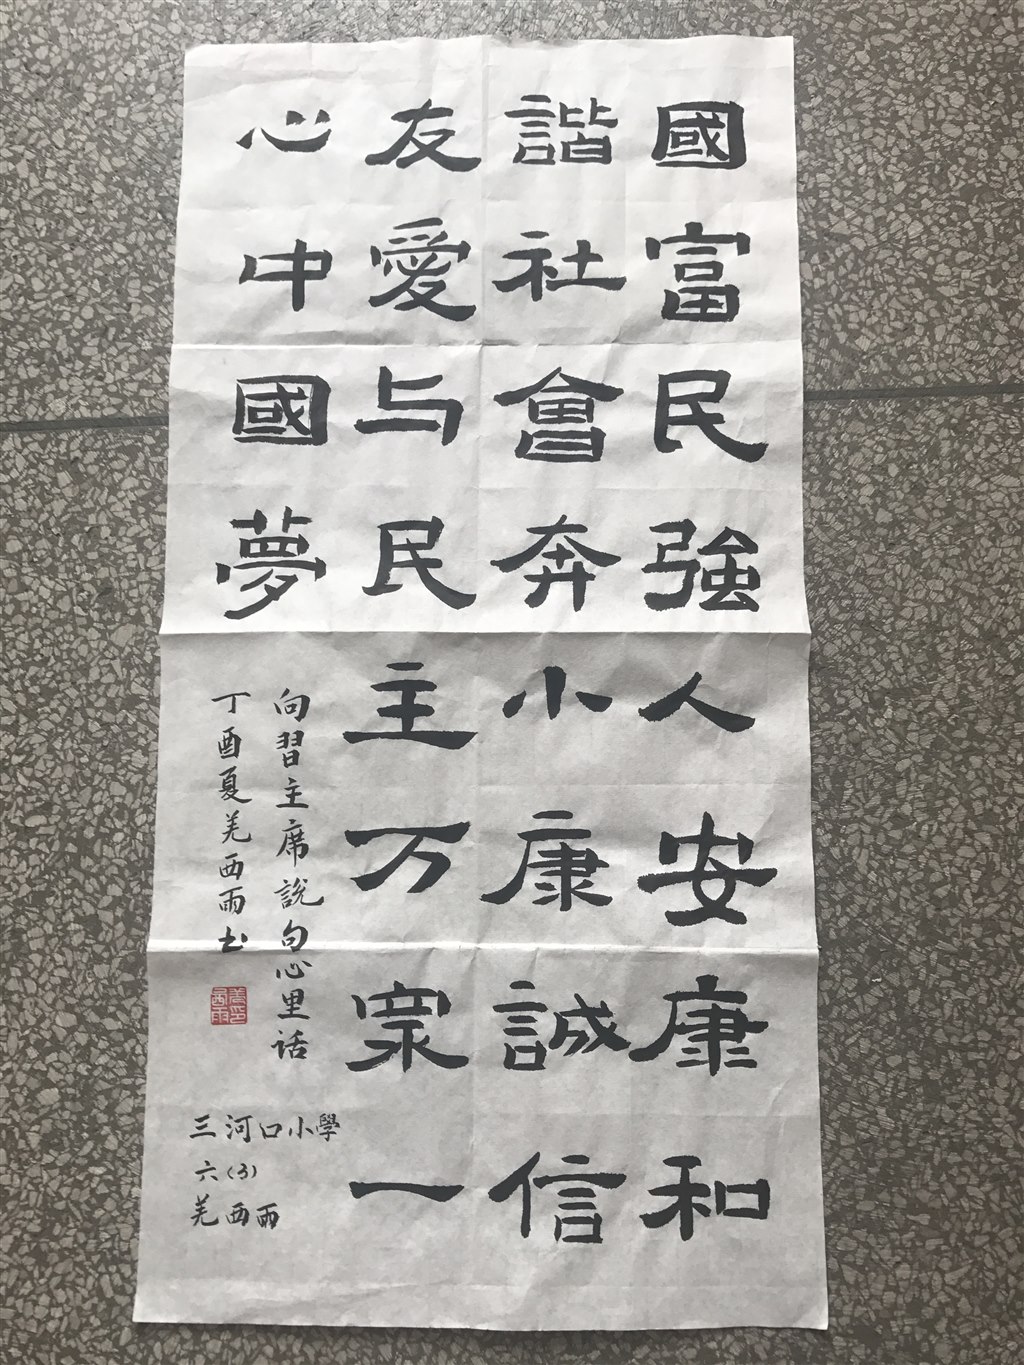 國富民強人安康和
諧社會奔小康誠信
友愛与民主万眾一
心中國夢
向習主席說句心里话
丁酉夏羌西雨书
三河口小學
六(3)
羌西雨